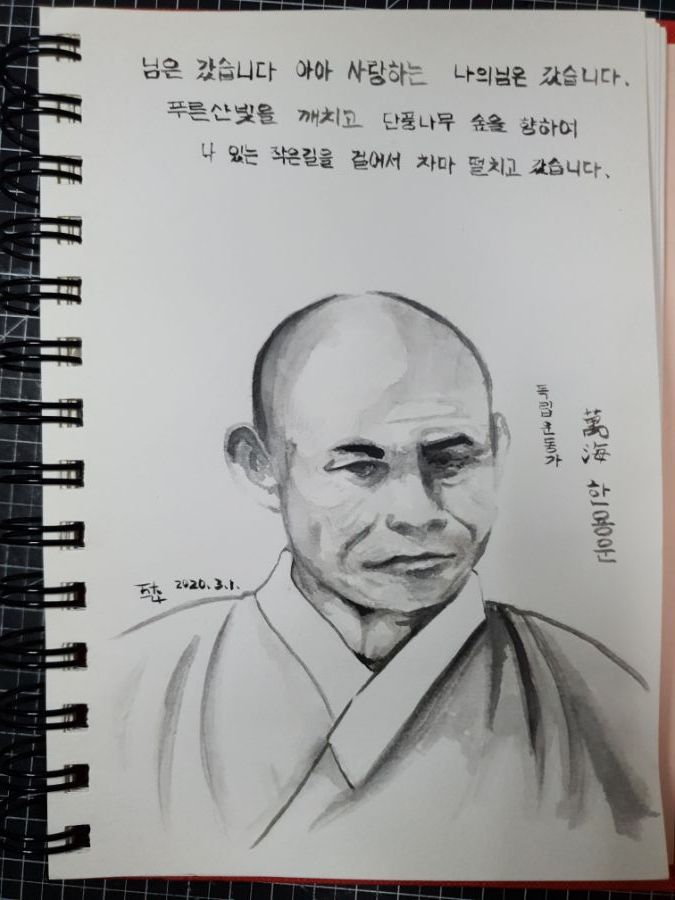 님은 갔습니다 아아 사랑하는 나의님은 갔습니다.
푸른산빛을 깨치고 단풍나무 숲을 향하여
나 있는 작은길을 걸어서 차마 떨치고 갔습니다.
독립운동가
萬海 한용운
2020.3.1.